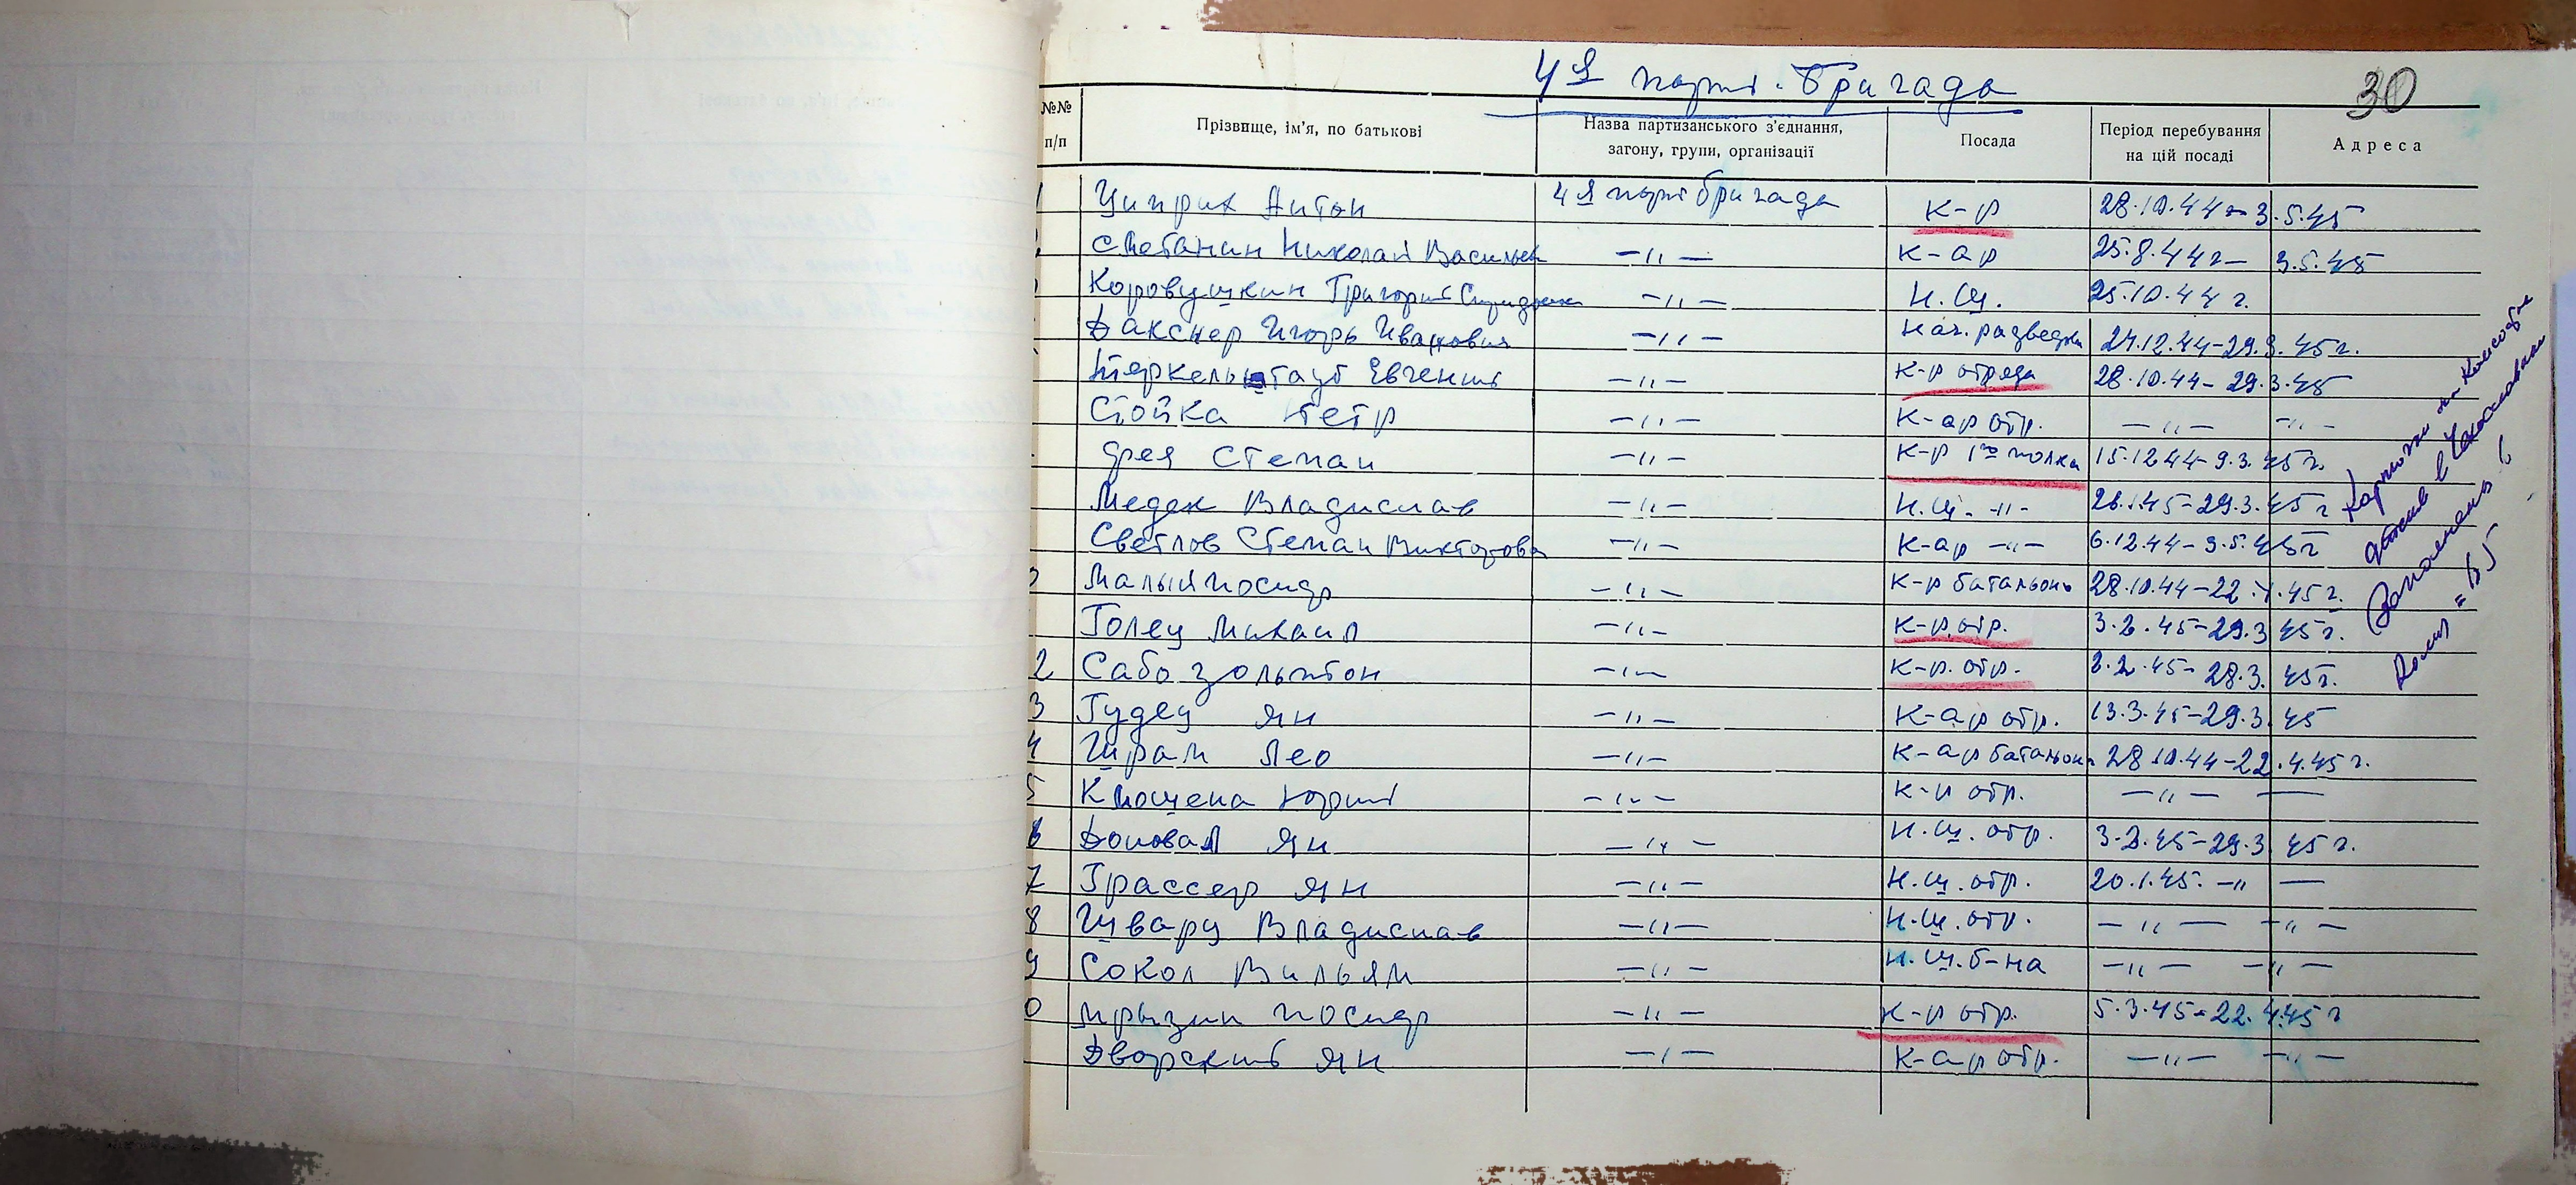 4я парт. бригада
30
№№ п/п
Прізвище, ім'я, по батькові
Назва партизанського з'єднання, загону, групи, організації
Посада
Період перебування на цій посаді
Адреса
1 Циприх Антон 4я парт бригада к-р 28.10.44 - 3.5.45
Сметанин Николай Васильев -"- к-ар 25.8.44г - 3.5.45
Коровушкин Григорий -"- Н.Ш. 25.10.44 г.
Дакснер Игорь Иванович -"- Нач. разведки 24.12.44-29.3.45г.
Евгений -"- к-р отряда 28.10.44-29.3.45
Стойка Петр -"- к-ар отр. -"- -"-
Фея Степан -"- к-р 1го полка 15.12.44-9.3.45г.
Медек Владислав -"- Н.Ш. -"- 1.45-29.3.45г
Светлов Степан Викторови -"- к-ар -"- 6.12.44-3.5.45г
Малый Иосиф -"- к-р батальона 28.10.44-22.4.45г.
Голец Михаил -"- к-р отр. 3.2.45-29.3.45г.
2 Сабо Золтон -"- к-р. отр. 2.45-28.3.45г.
3 Гудец Ян -"- к-ар отр. 13.3.45-29.3.45
4 Шрам Лео -"- к-ар батальона 28.10.44-22.4.45г.
5 Юрий -"- отр. -"- —
6 Доновал Ян -"- н.ш. отр. 3.2.45-29.3.45г.
7 Грассер Ян -"- н.ш. отр. 20.1.45. -"- —
8 Шварц Владислав -"- н.ш. отр. -"- -"-
9 Сокол Вильям -"- н.ш. б-на -"- -"-
0 Мрызин Иосиф -"- к-р отр. 5.3.45-22.4.45г
Дворский Ян -"- к-ар отр. -"- -"-
Карточки на
в Чехословакии